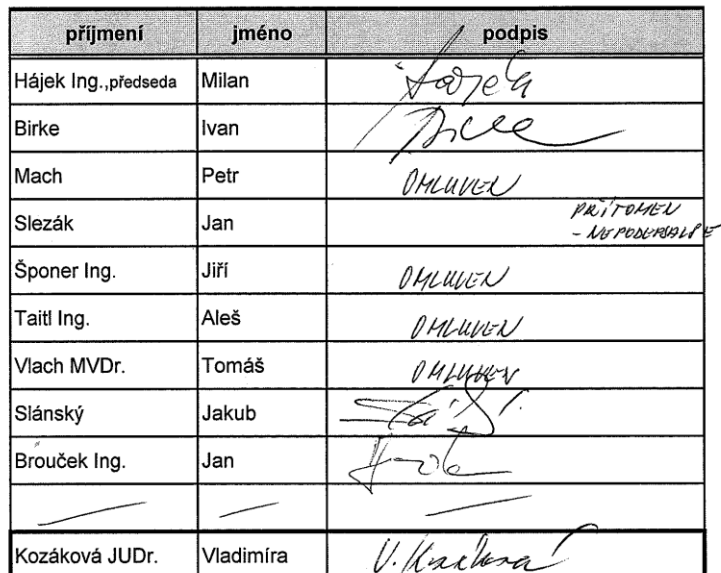 příjmení jméno podpis
Hájek Ing.,předseda Milan Hájek
Birke Ivan Birke
Mach Petr OMLUVEN
Slezák Jan PŘÍTOMEN
- NEPODEPSAL SE
Šponer Ing. Jiří OMLUVEN
Taitl Ing. Aleš OMLUVEN
Vlach MVDr. Tomáš OMLUVEN
Slánský Jakub
Brouček Ing. Jan
Kozáková JUDr. Vladimíra V. Kozáková